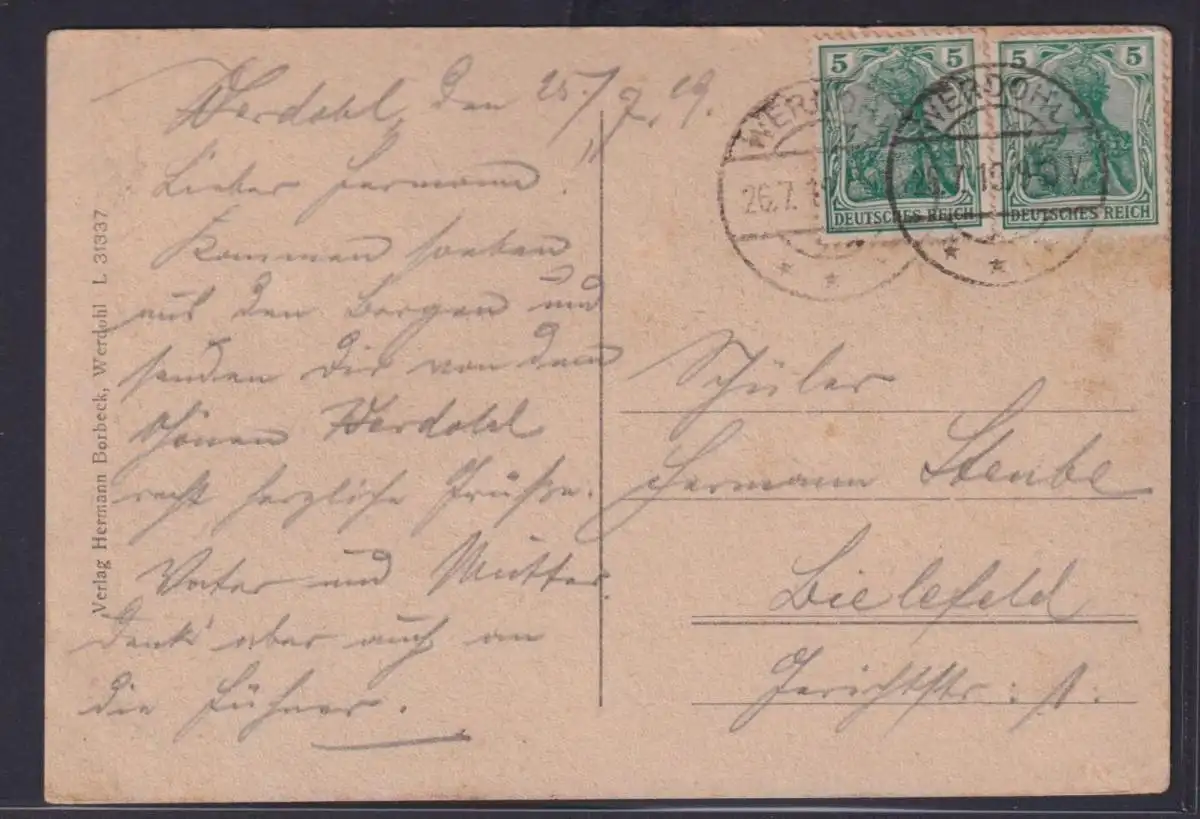 Werdohl, den 25./7.19.
Lieber Hermann!
Kommen soeben
aus den Bergen und
senden Dir von dem
schönen Werdohl
recht herzliche Grüße.
Vater und Mutter.
Denk' aber auch an
die Hühner.
Verlag Hermann Borbeck, Werdohl L 31337
5 5
DEUTSCHES REICH
5 5
DEUTSCHES REICH
WERDOHL
26.7.1
WERDOHL
.7.19.9-10V
Schüler
Hermann Stenbe
Bielefeld
Gerichtstr: 1.